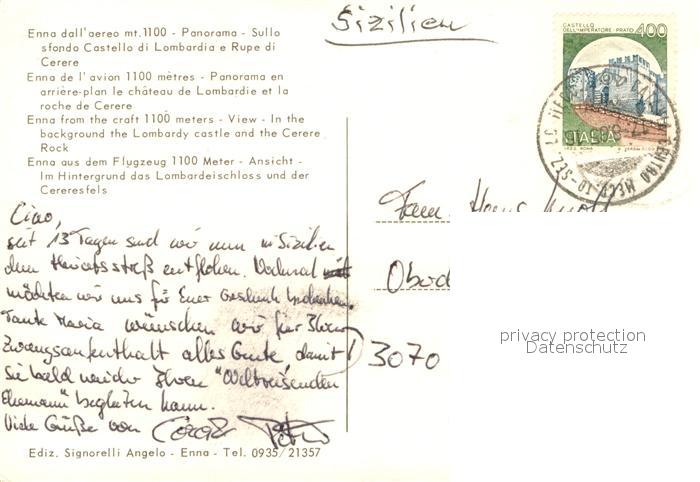 Sizilien
Enna dall'aereo mt. 1100 - Panorama - Sullo
sfondo Castello di Lombardia e Rupe di
Cerere
Enna de l'avion 1100 mètres - Panorama en
arrière-plan le château de Lombardie et la
roche de Cerere
Enna from the craft 1100 meters - View - In the
background the Lombardy castle and the Cerere
Rock
Enna aus dem Flygzeug 1100 Meter - Ansicht -
Im Hintergrund das Lombardeischloss und der
Cereresfels
CASTELLO
DELL'IMPERATORE - PRATO 400
ITALIA
Ciao,
seit 13 Tagen sind wir nun in Sizilien
dem Heiratsstreß entflohen. Nochmal
möchten wir uns für Euer Geschenk bedanken.
Tante Maria wünschen wir für Ihren
Zwangsaufenthalt alles Gute, damit
sie bald wieder Ihren "Weltreisenden
Ehemann" begleiten kann.
Viele Grüße von
Fam. Hans
Oberd
3070
privacy protection
Datenschutz
Ediz. Signorelli Angelo - Enna - Tel. 0935/21357